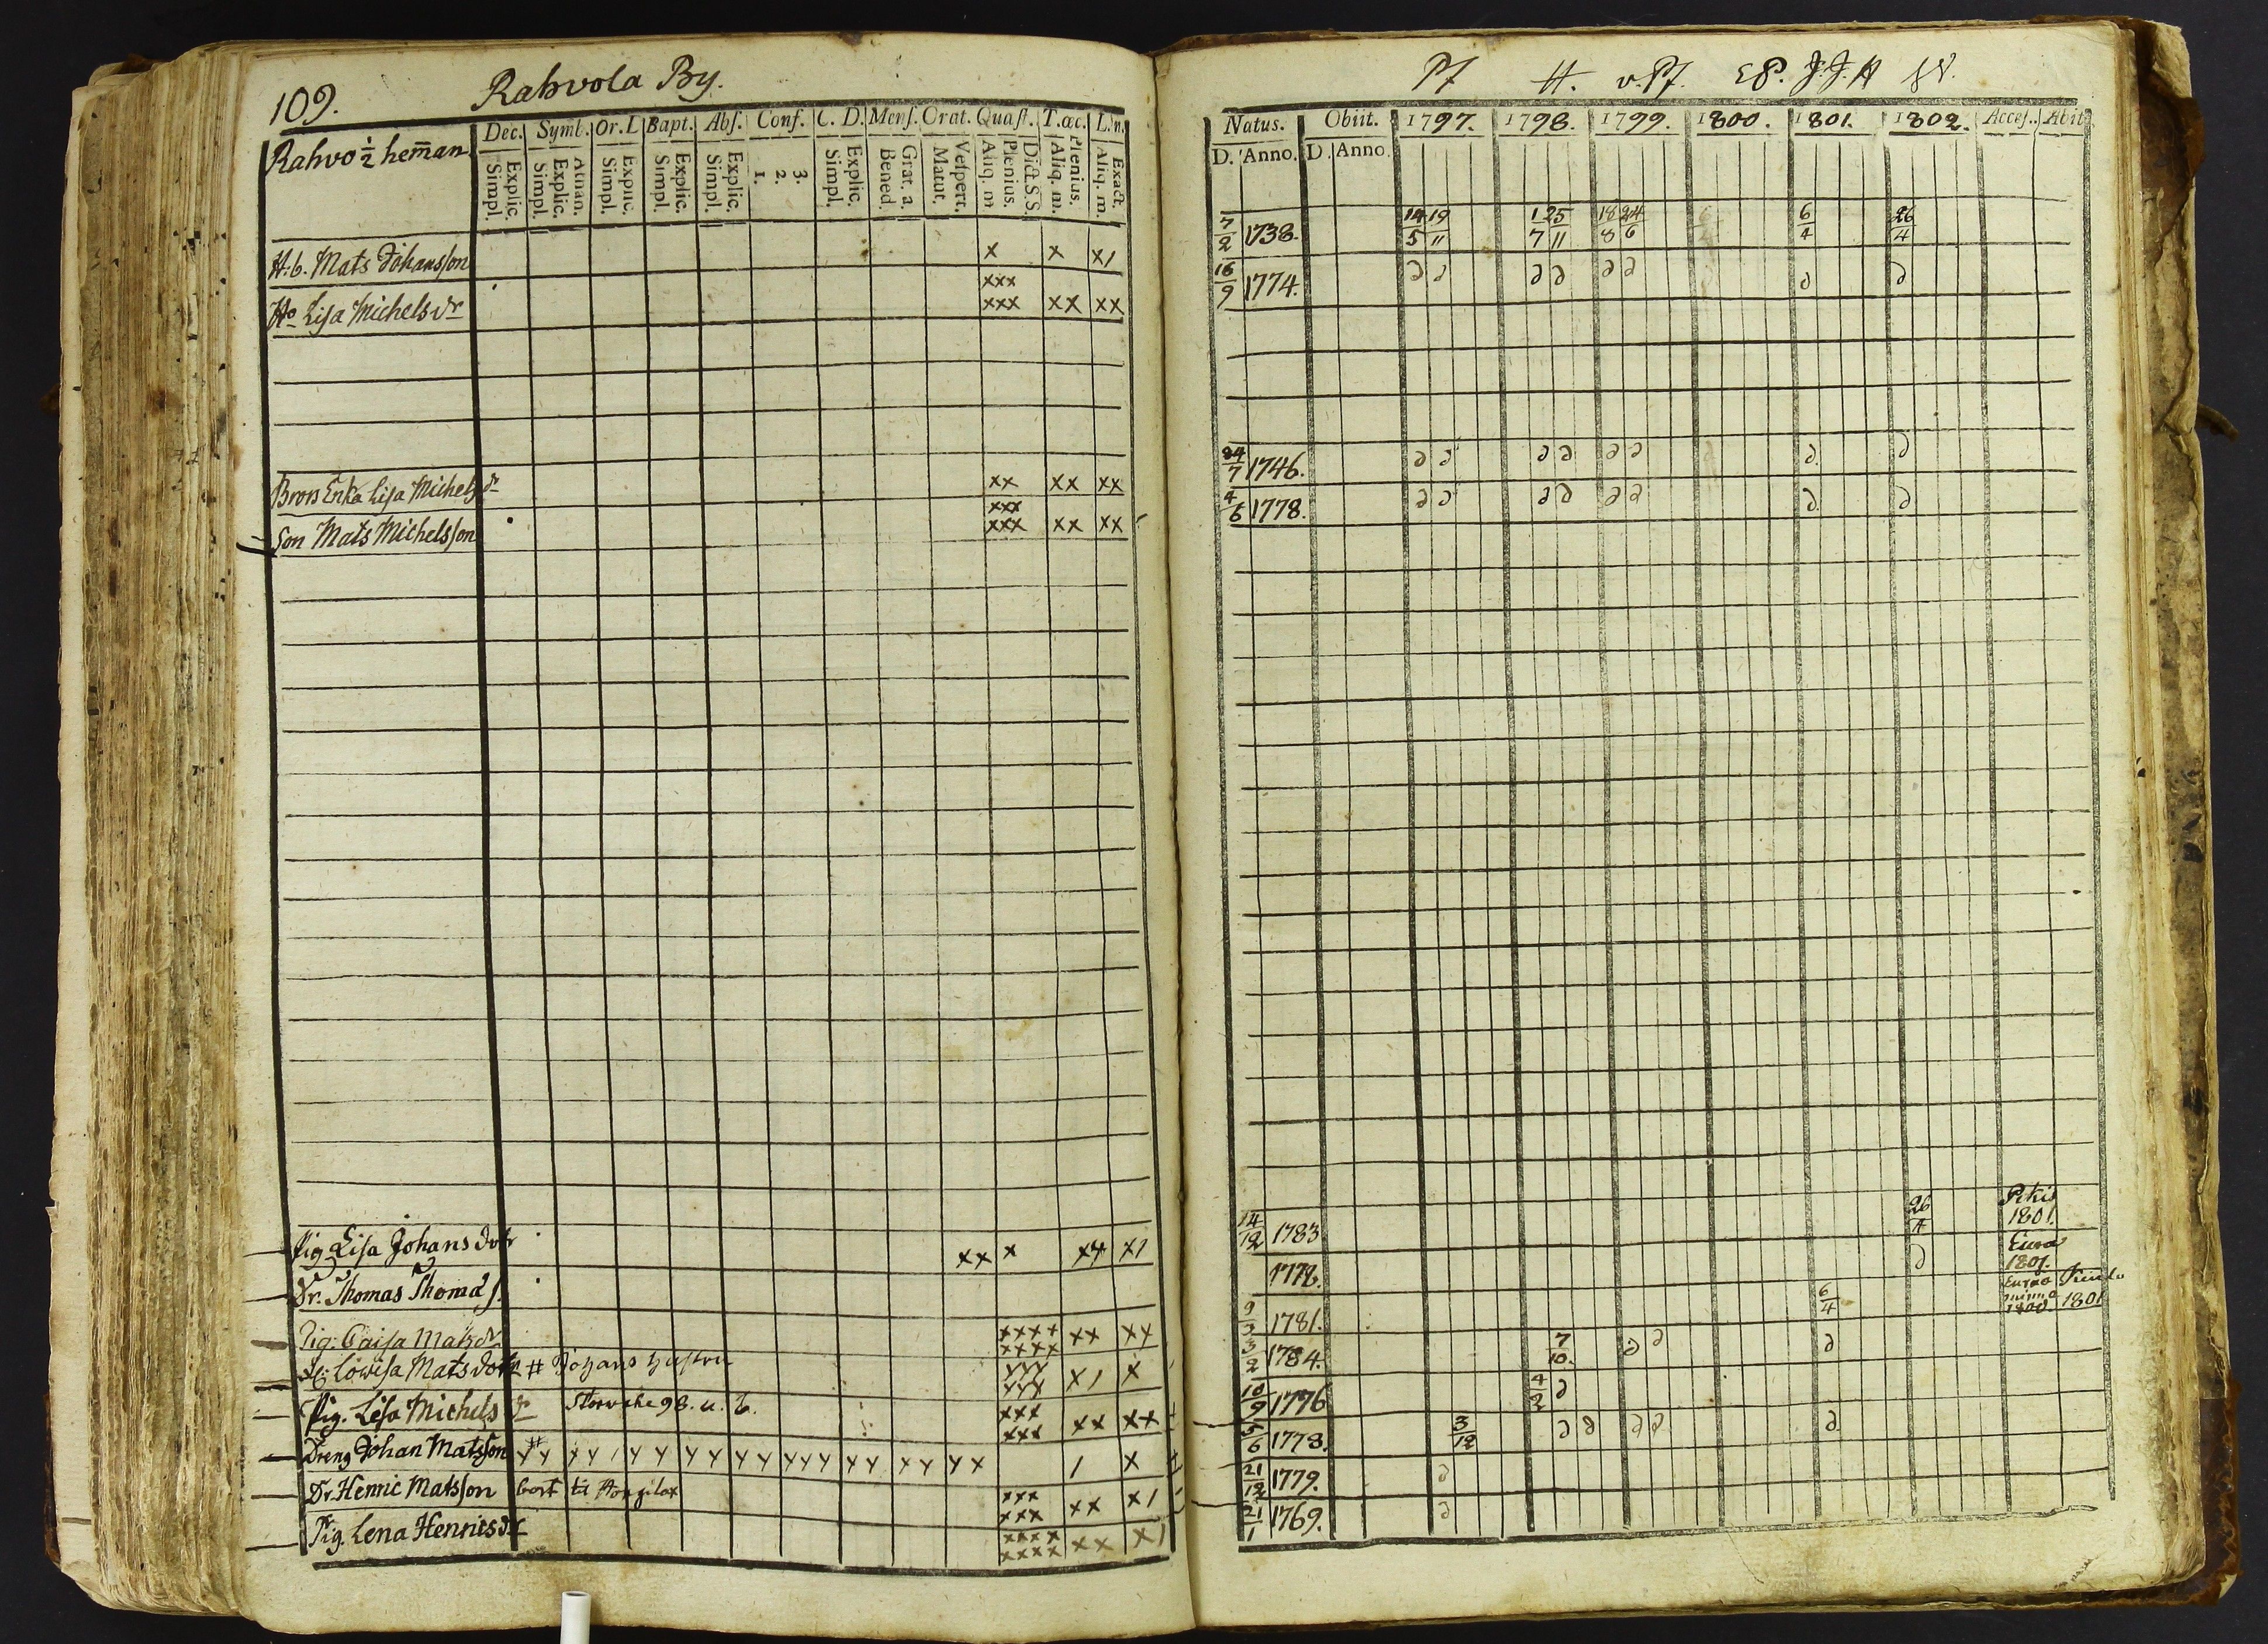 109. Rahvola By.
Dec. Symb. Or. D Bapt. Abs. Conf. C. D. Mens. Orat. Quæst. T. œc. L. in.
Rahvo ½ hem̄an
Explic. Simpl. Athan. Explic. Simpl. Explic. Simpl. Explic. Simpl. Explic. Simpl. 3. 2. 1. Explic. Simpl. Grat. a. Bened. Vespert. Matut. Dict. S. S. Plenius. Aliq. m Plenius. Aliq. m. Exact. Aliq. m.
H.b. Mats Johansson x x x/
Ho Lisa Michelsdr xxx xxx xx xx
Brors Enka Lisa Michelsdr xx xx xx
Son Mats Michelsson xxx xxx xx xx
Pig. Lisa Johans dotr xx x xx x/
Dr. Thomas Thomas s.
Pig: Caisa Matsdr xxxx xxxx xx xx
Lowisa Matsdotr # Johans hustru yyy yyy x/ x
Pig. Lisa Michels dr 98. u. b. xxx xxx xx xx
Dreng Johan Matsson
Dr. Henric Matsson bort til xxx xxx xx x/
Pig. Lena Henricsdr xxxx xxxx xx x/
H. v. Pf. J. J. H
Natus. Obiit. 1797. 1798. 1799. 1800. 1801. 1802. Acces. Abit
D. Anno. D. Anno.
7/2 1738. 14/5 19/11 1/7 25/11 18/8 24/6 6/4 26/4
16/9 1774. ∂ ∂ ∂ ∂ ∂ ∂ ∂ ∂
24/7 1746. ∂ ∂ ∂ ∂ ∂ ∂ ∂ ∂
4/6 1778. ∂ ∂ ∂ ∂ ∂ ∂ ∂ ∂
14/12 1783 26/4 1801.
1778. ∂ Eura 1801.
9/3 1781. 6/4 Eurao 1800 1801
3/2 1784. 7/10. ∂ ∂ ∂
10/9 1776 4/2 ∂
5/6 1778. 3/12 ∂ ∂ ∂ ∂ ∂
21/12 1779. ∂
21/1 1769. ∂